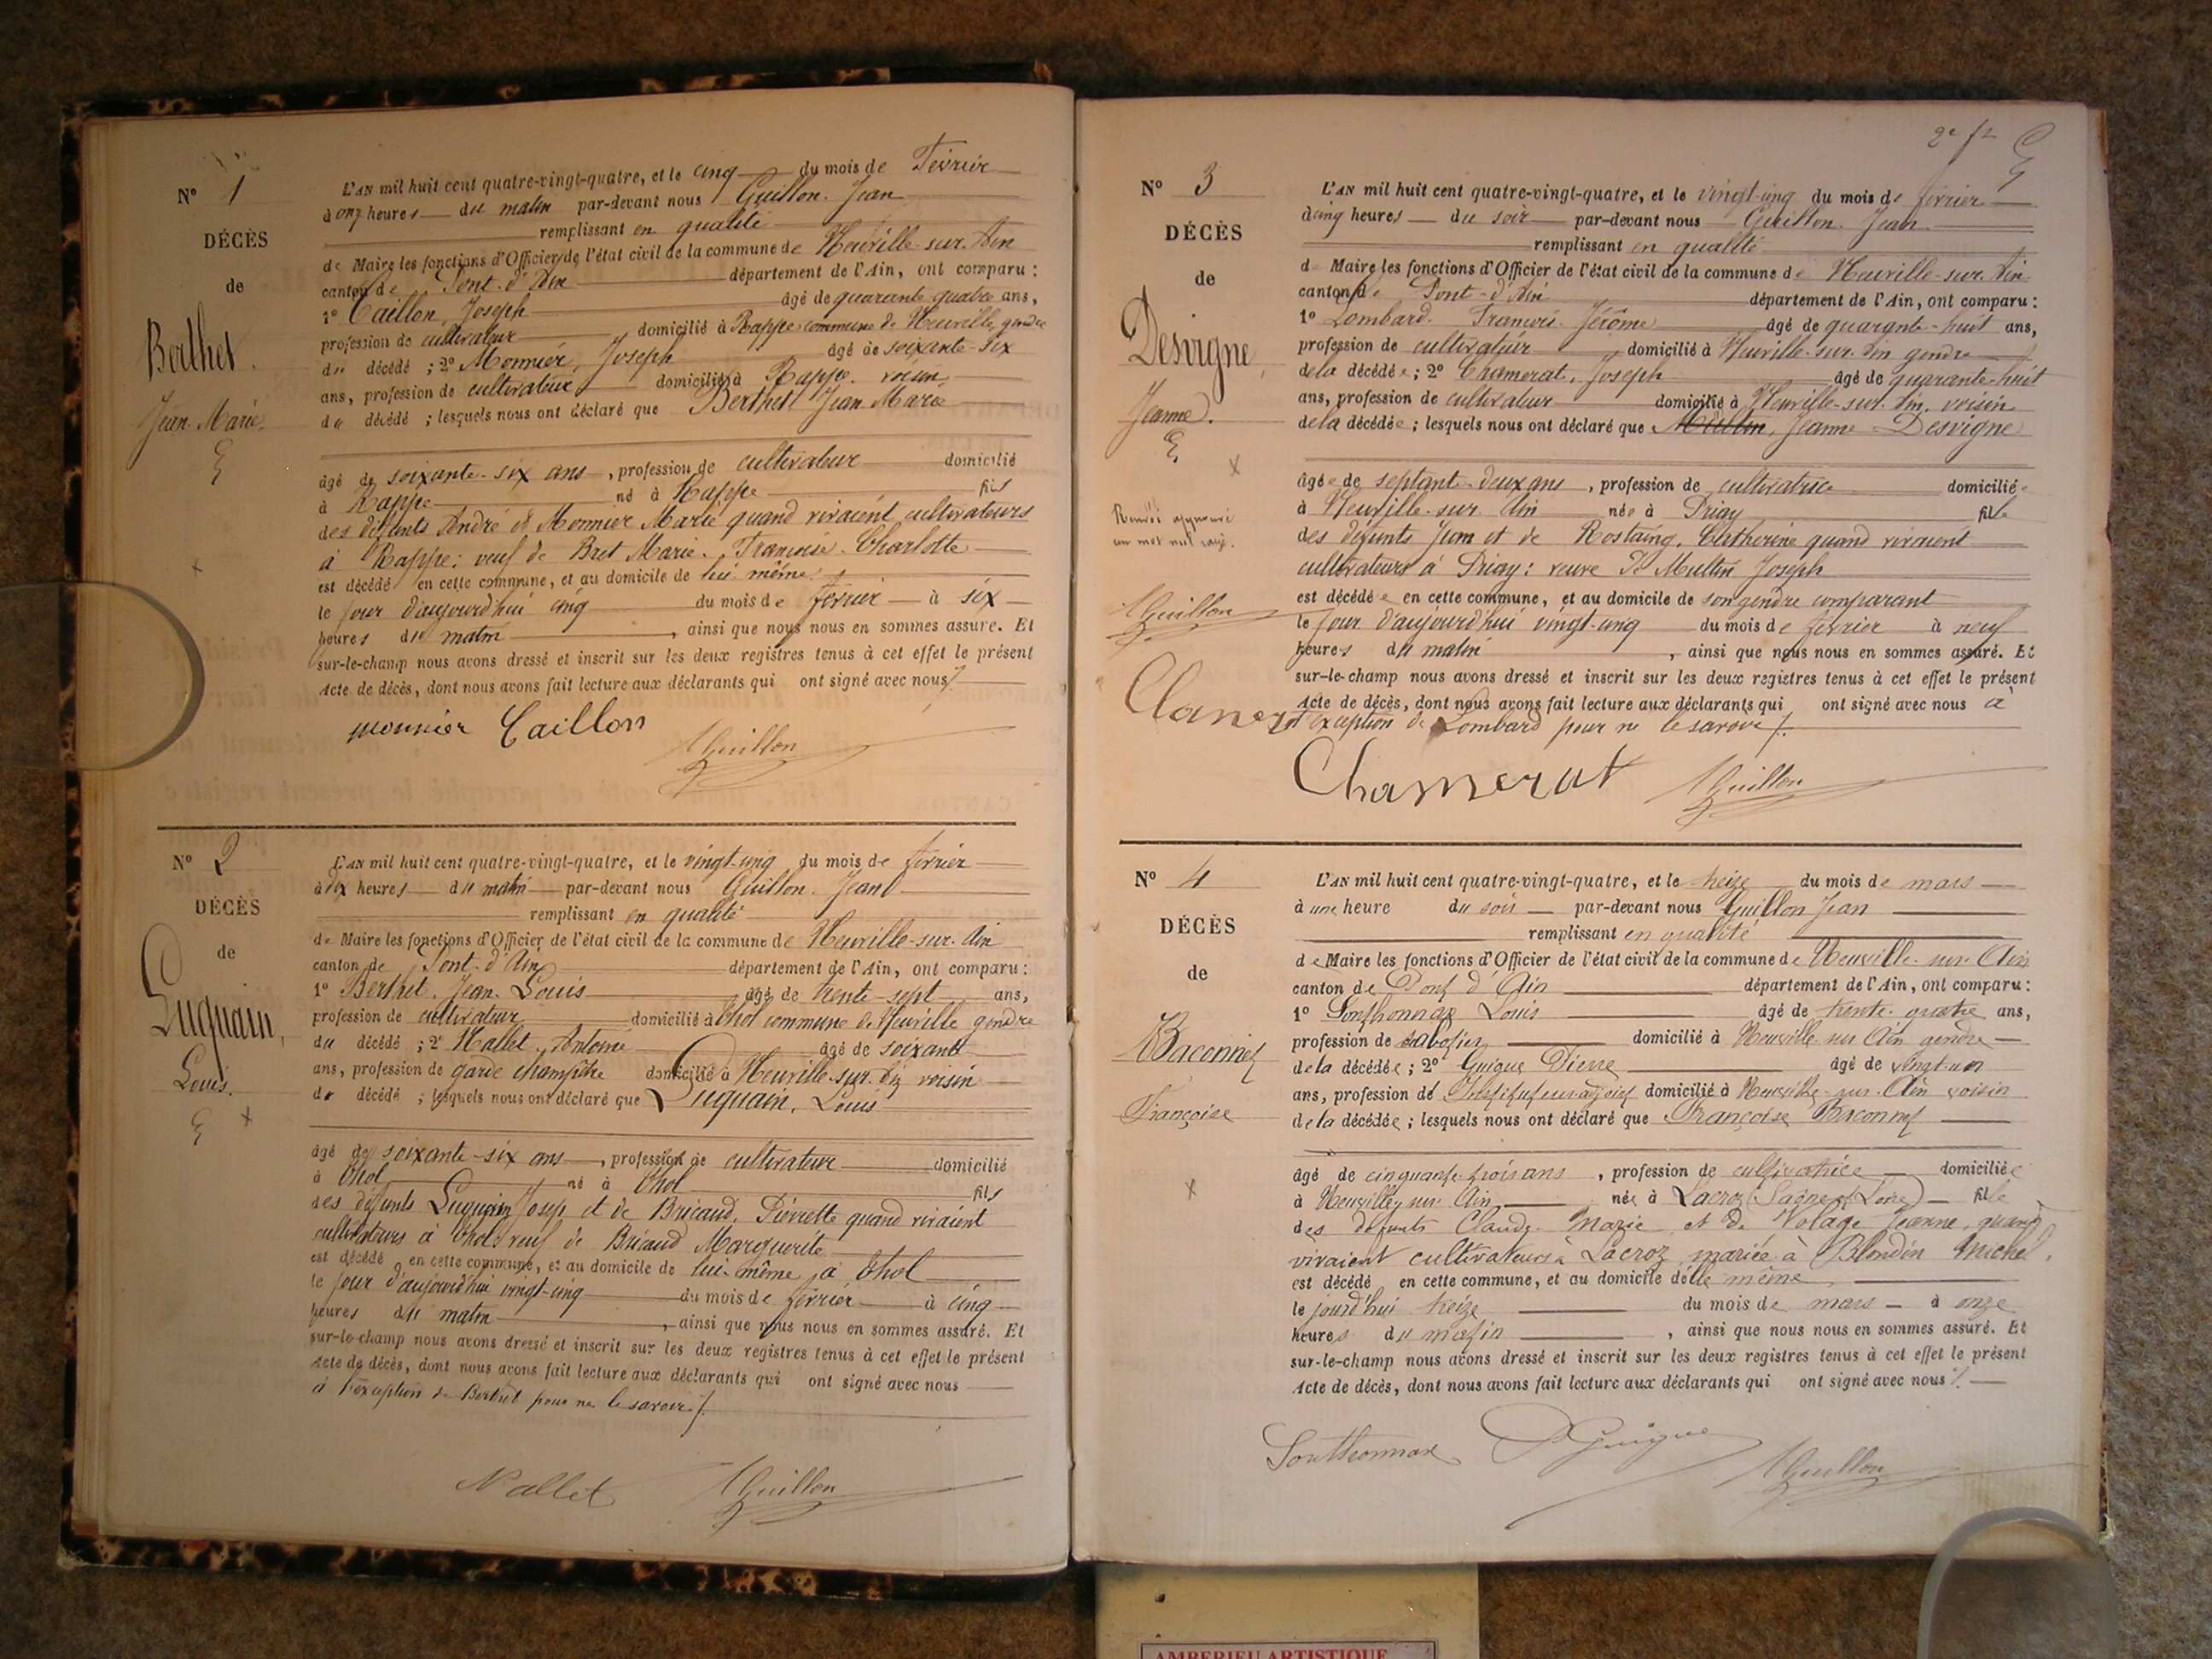 N° 1
DÉCÈS
de
Berthet
Jean-Marie.
L'AN mil huit cent quatre-vingt-quatre, et le cinq du mois de Février
à onz heures du matin par-devant nous Guillon Jean
remplissant en qualité
de Maire les fonctions d'Officier de l'état civil de la commune de Neuville-sur-Ain
canton de Pont-d'Ain département de l'Ain, ont comparu :
1° Caillon, Joseph âgé de quarante quatre ans,
profession de cultivateur domicilié à Rappe commune de Neuville, gendre
du décédé ; 2° Monnier, Joseph âgé de soixante-six
ans, profession de cultivateur domicilié à Rappe. voisin
du décédé ; lesquels nous ont déclaré que Berthet Jean Marie
âgé de soixante-six ans, profession de cultivateur domicilié
à Rappe né à Rappe fils
des défunts André et Monnier Marie quand vivaient cultivateurs
à Rappe: veuf de Bret Marie. Françoise. Charlotte
est décédé en cette commune, et au domicile de lui-même
le jour d'aujourd'hui cinq du mois de février à six
heures du matin, ainsi que nous nous en sommes assuré. Et
sur-le-champ nous avons dressé et inscrit sur les deux registres tenus à cet effet le présent
Acte de décès, dont nous avons fait lecture aux déclarants qui ont signé avec nous
monnier Caillon
Guillon
N° 2
DÉCÈS
de
Luquain,
Louis.
L'AN mil huit cent quatre-vingt-quatre, et le vingt-cinq du mois de février
à dix heures du matin par-devant nous Guillon Jean
remplissant en qualité
de Maire les fonctions d'Officier de l'état civil de la commune de Neuville-sur-Ain
canton de Pont-d'Ain département de l'Ain, ont comparu :
1° Berthet, Jean-Louis âgé de trente-sept ans,
profession de cultivateur domicilié à Thol commune de Neuville gendre
du décédé ; 2° Nallet, Antoine âgé de soixante
ans, profession de garde champêtre domicilié à Neuville-sur-Ain voisin
du décédé ; lesquels nous ont déclaré que Luquain, Louis
âgé de soixante-six ans, profession de cultivateur domicilié
à Thol né à Thol fils
des défunts Luquain Josep et de Bricaud, Pierrette quand vivaient
cultivateurs à Thol: veuf de Bricaud Marguerite
est décédé en cette commune, et au domicile de lui-même à Thol
le jour d'aujourd'hui vingt-cinq du mois de février à cinq
heures du matin, ainsi que nous nous en sommes assuré. Et
sur-le-champ nous avons dressé et inscrit sur les deux registres tenus à cet effet le présent
Acte de décès, dont nous avons fait lecture aux déclarants qui ont signé avec nous
à l'exception de Berthet pour ne le savoir
Nallet Guillon
N° 3
DÉCÈS
de
Desvigne,
Jeanne.
un mot nul rayé.
Guillon
L'AN mil huit cent quatre-vingt-quatre, et le vingt-cinq du mois de février
à cinq heures du soir par-devant nous Guillon Jean
remplissant en qualité
de Maire les fonctions d'Officier de l'état civil de la commune de Neuville-sur-Ain
canton de Pont-d'Ain département de l'Ain, ont comparu :
1° Lombard François Jérôme âgé de quarante-huit ans,
profession de cultivateur domicilié à Neuville-sur-Ain gendre
de la décédée ; 2° Chamerat, Joseph âgé de quarante-huit
ans, profession de cultivateur domicilié à Neuville-sur-Ain, voisin
de la décédée ; lesquels nous ont déclaré que Jeanne Desvigne
âgée de septant-deux ans, profession de cultivatrice domiciliée
à Neuville-sur-Ain née à Priay fille
des défunts Jean et de Rostaing, Catherine quand vivaient
cultivateurs à Priay: veuve de Multin Joseph
est décédée en cette commune, et au domicile de son gendre comparant
le jour d'aujourd'hui vingt-cinq du mois de février à neuf
heures du matin, ainsi que nous nous en sommes assuré. Et
sur-le-champ nous avons dressé et inscrit sur les deux registres tenus à cet effet le présent
Acte de décès, dont nous avons fait lecture aux déclarants qui ont signé avec nous à
l'exception de Lombard pour ne le savoir
Chamerat Guillon
N° 4
DÉCÈS
de
Baconnet
Françoise
L'AN mil huit cent quatre-vingt-quatre, et le treize du mois de mars
à une heure du soir par-devant nous Guillon Jean
remplissant en qualité
de Maire les fonctions d'Officier de l'état civil de la commune de Neuville-sur-Ain
canton de Pont d'Ain département de l'Ain, ont comparu :
1° Sonthonnax Louis âgé de trente-quatre ans,
profession de sabotier domicilié à Neuville sur Ain gendre
de la décédée ; 2° Guigue Pierre âgé de vingt-un
ans, profession de Instituteur adjoint domicilié à Neuville-sur-Ain voisin
de la décédée ; lesquels nous ont déclaré que Françoise Baconnet
âgé de cinquante-trois ans, profession de cultivatrice domiciliée
à Neuville sur Ain née à Lacroz fille
des défunts Claude-Marie et de Volage Jeanne, quand
vivaient cultivateurs à Lacroz mariée à Blondin Michel.
est décédé en cette commune, et au domicile d'elle même
le jourd'hui treize du mois de mars à onze
heures du matin, ainsi que nous nous en sommes assuré. Et
sur-le-champ nous avons dressé et inscrit sur les deux registres tenus à cet effet le présent
Acte de décès, dont nous avons fait lecture aux déclarants qui ont signé avec nous
Sonthonnax P Guigue
Guillon
AMBERIEU ARTISTIQUE